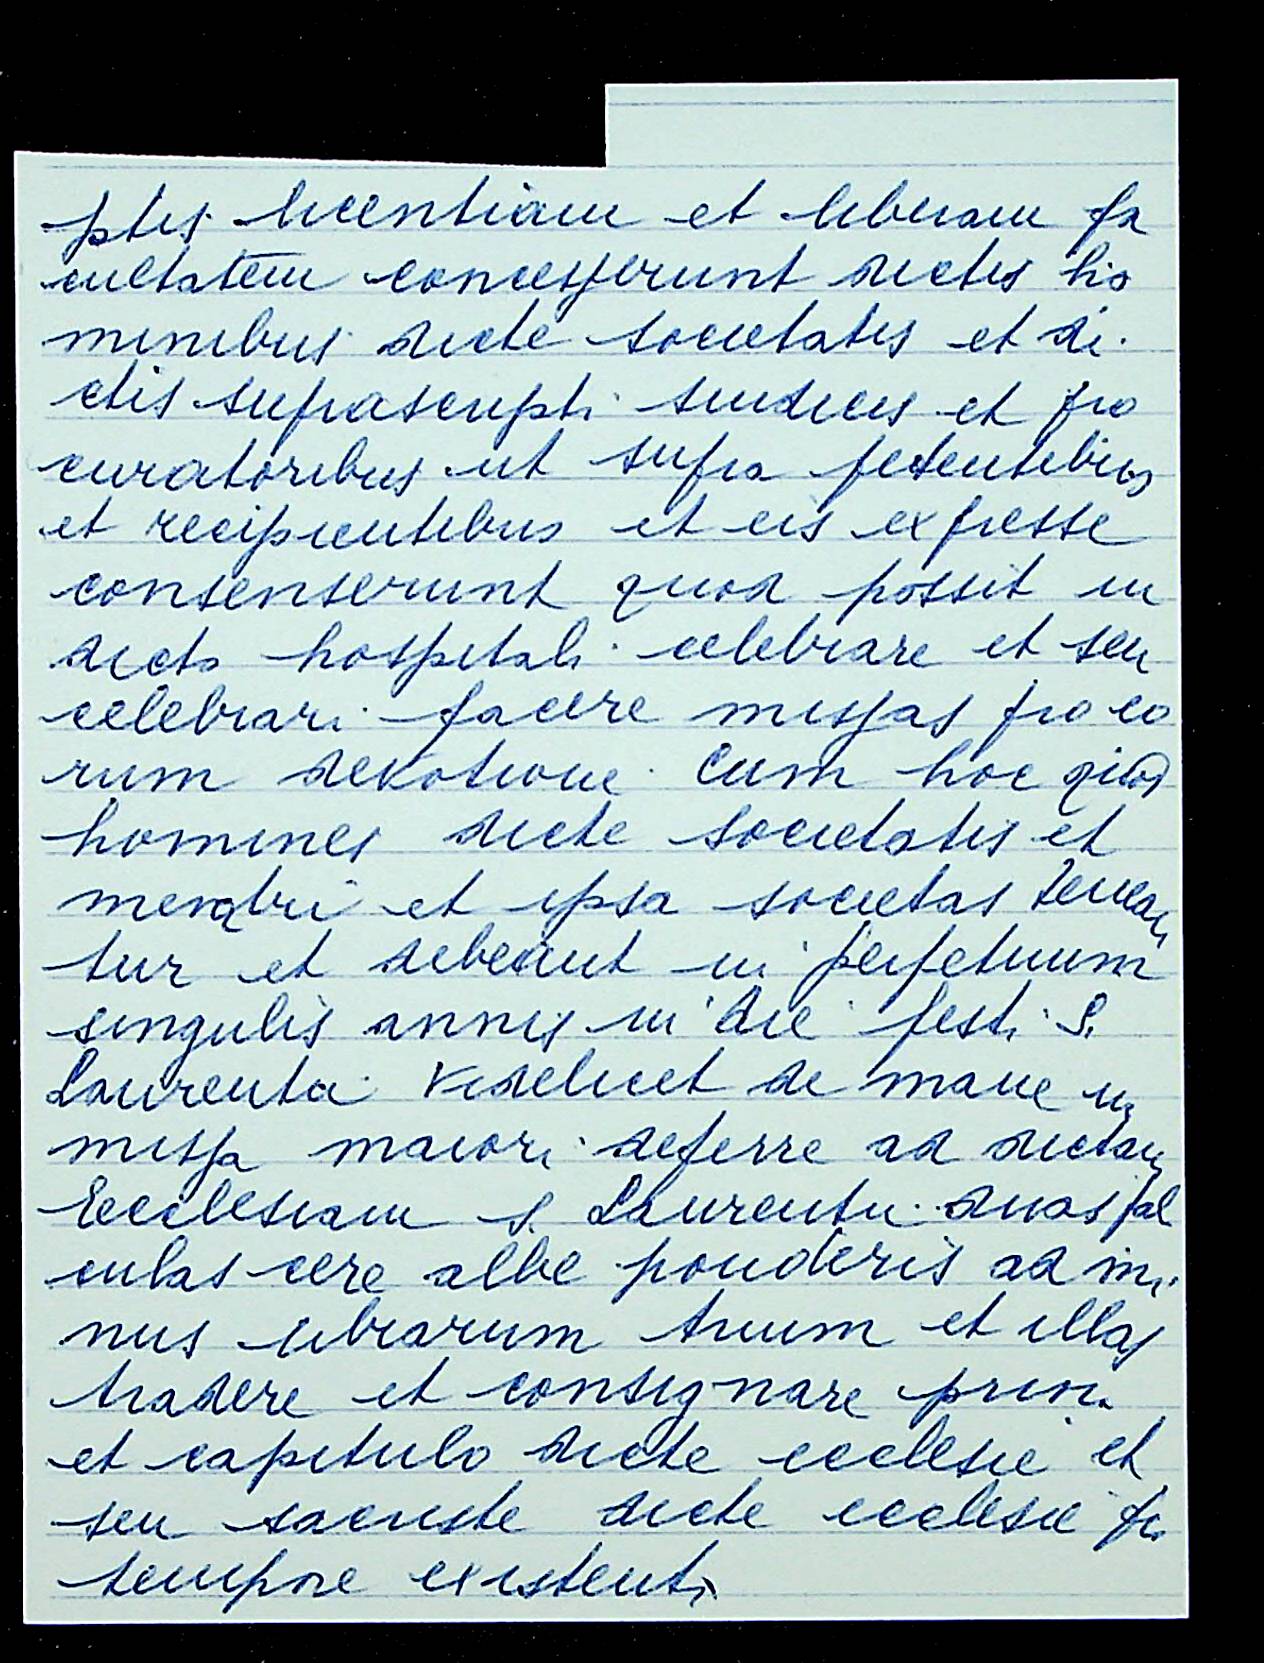 ptis licentiam et liberam fa
cultatem concesserunt dictis ho
minibus dicte societatis et di
ctis suprascripti sindicis et pro
curatoribus ut supra petentibus
et recipientibus et eis expresse
consenserunt quod possit in
dicto hospitali celebrare et seu
celebrari facere missas pro eo
rum devotione. Cum hoc quod
homines dicte societatis et
membri et ipsa societas tenean
tur et debeant in perpetuum
singulis annis in die festi S.
Laurentii videlicet de mane in
missa maiori deferre ad dictam
Ecclesiam S. Laurentii duas fal
culas cere albe ponderis ad mi
nus librarum trium et illas
tradere et consignare priori
et capitulo dicte ecclesie et
seu sacriste dicte ecclesie pro
tempore existenti